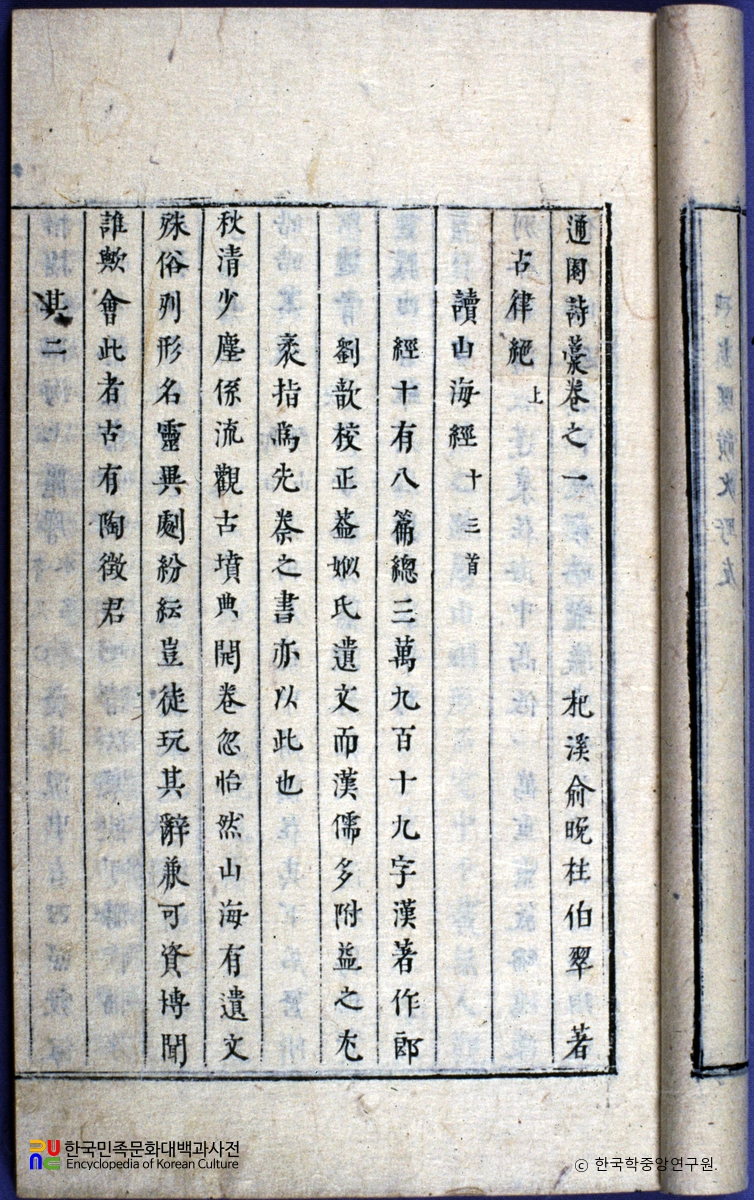 通園詩藁卷之一 杞溪俞晩柱伯翠著
古律絕上
讀山海經十三首
經十有八篇總三萬九百十九字漢著作郎
劉歆校正葢姒氏遺文而漢儒多附益之尤
袤指爲先秦之書亦以此也
秋清少塵係流觀古墳典開卷忽怡然山海有遺文
殊俗列形名靈異劇紛紜豈徒玩其辭兼可資博聞
誰歟會此者古有陶徵君
其二
한국민족문화대백과사전
Encyclopedia of Korean Culture
© 한국학중앙연구원.